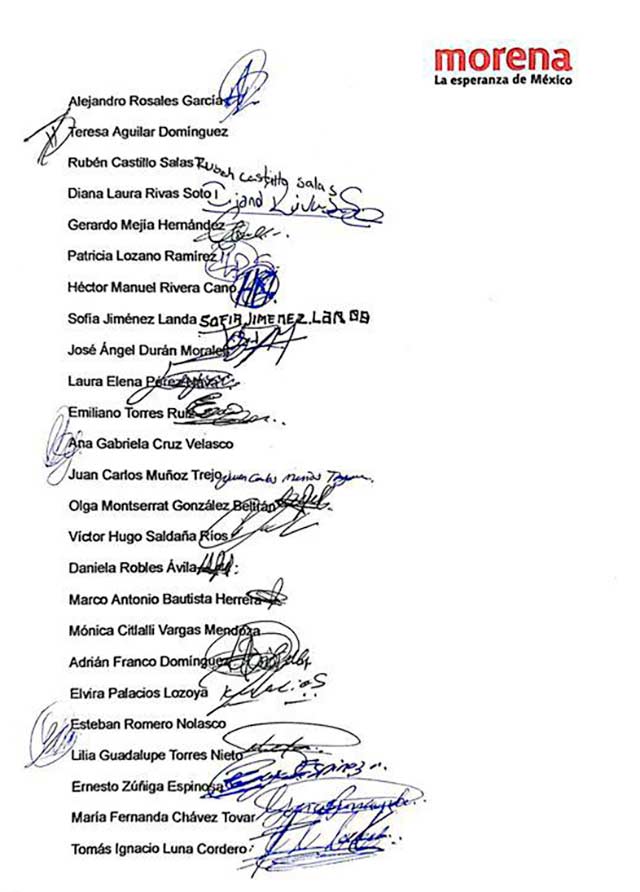 morena
La esperanza de México
Alejandro Rosales García
Teresa Aguilar Domínguez
Rubén Castillo Salas Ruben castillo salas
Diana Laura Rivas Soto
Gerardo Mejía Hernández
Patricia Lozano Ramírez
Héctor Manuel Rivera Cano
Sofía Jiménez Landa SOFIA JIMENEZ LANDA
José Ángel Durán Morales
Laura Elena Pérez Nava
Emiliano Torres Ruiz
Ana Gabriela Cruz Velasco
Juan Carlos Muñoz Trejo Juan Carlos Muñoz
Olga Montserrat González Beltrán
Víctor Hugo Saldaña Ríos
Daniela Robles Ávila
Marco Antonio Bautista Herrera
Mónica Citlalli Vargas Mendoza
Adrián Franco Domínguez
Elvira Palacios Lozoya
Esteban Romero Nolasco
Lilia Guadalupe Torres Nieto
Ernesto Zúñiga Espinosa
María Fernanda Chávez Tovar
Tomás Ignacio Luna Cordero